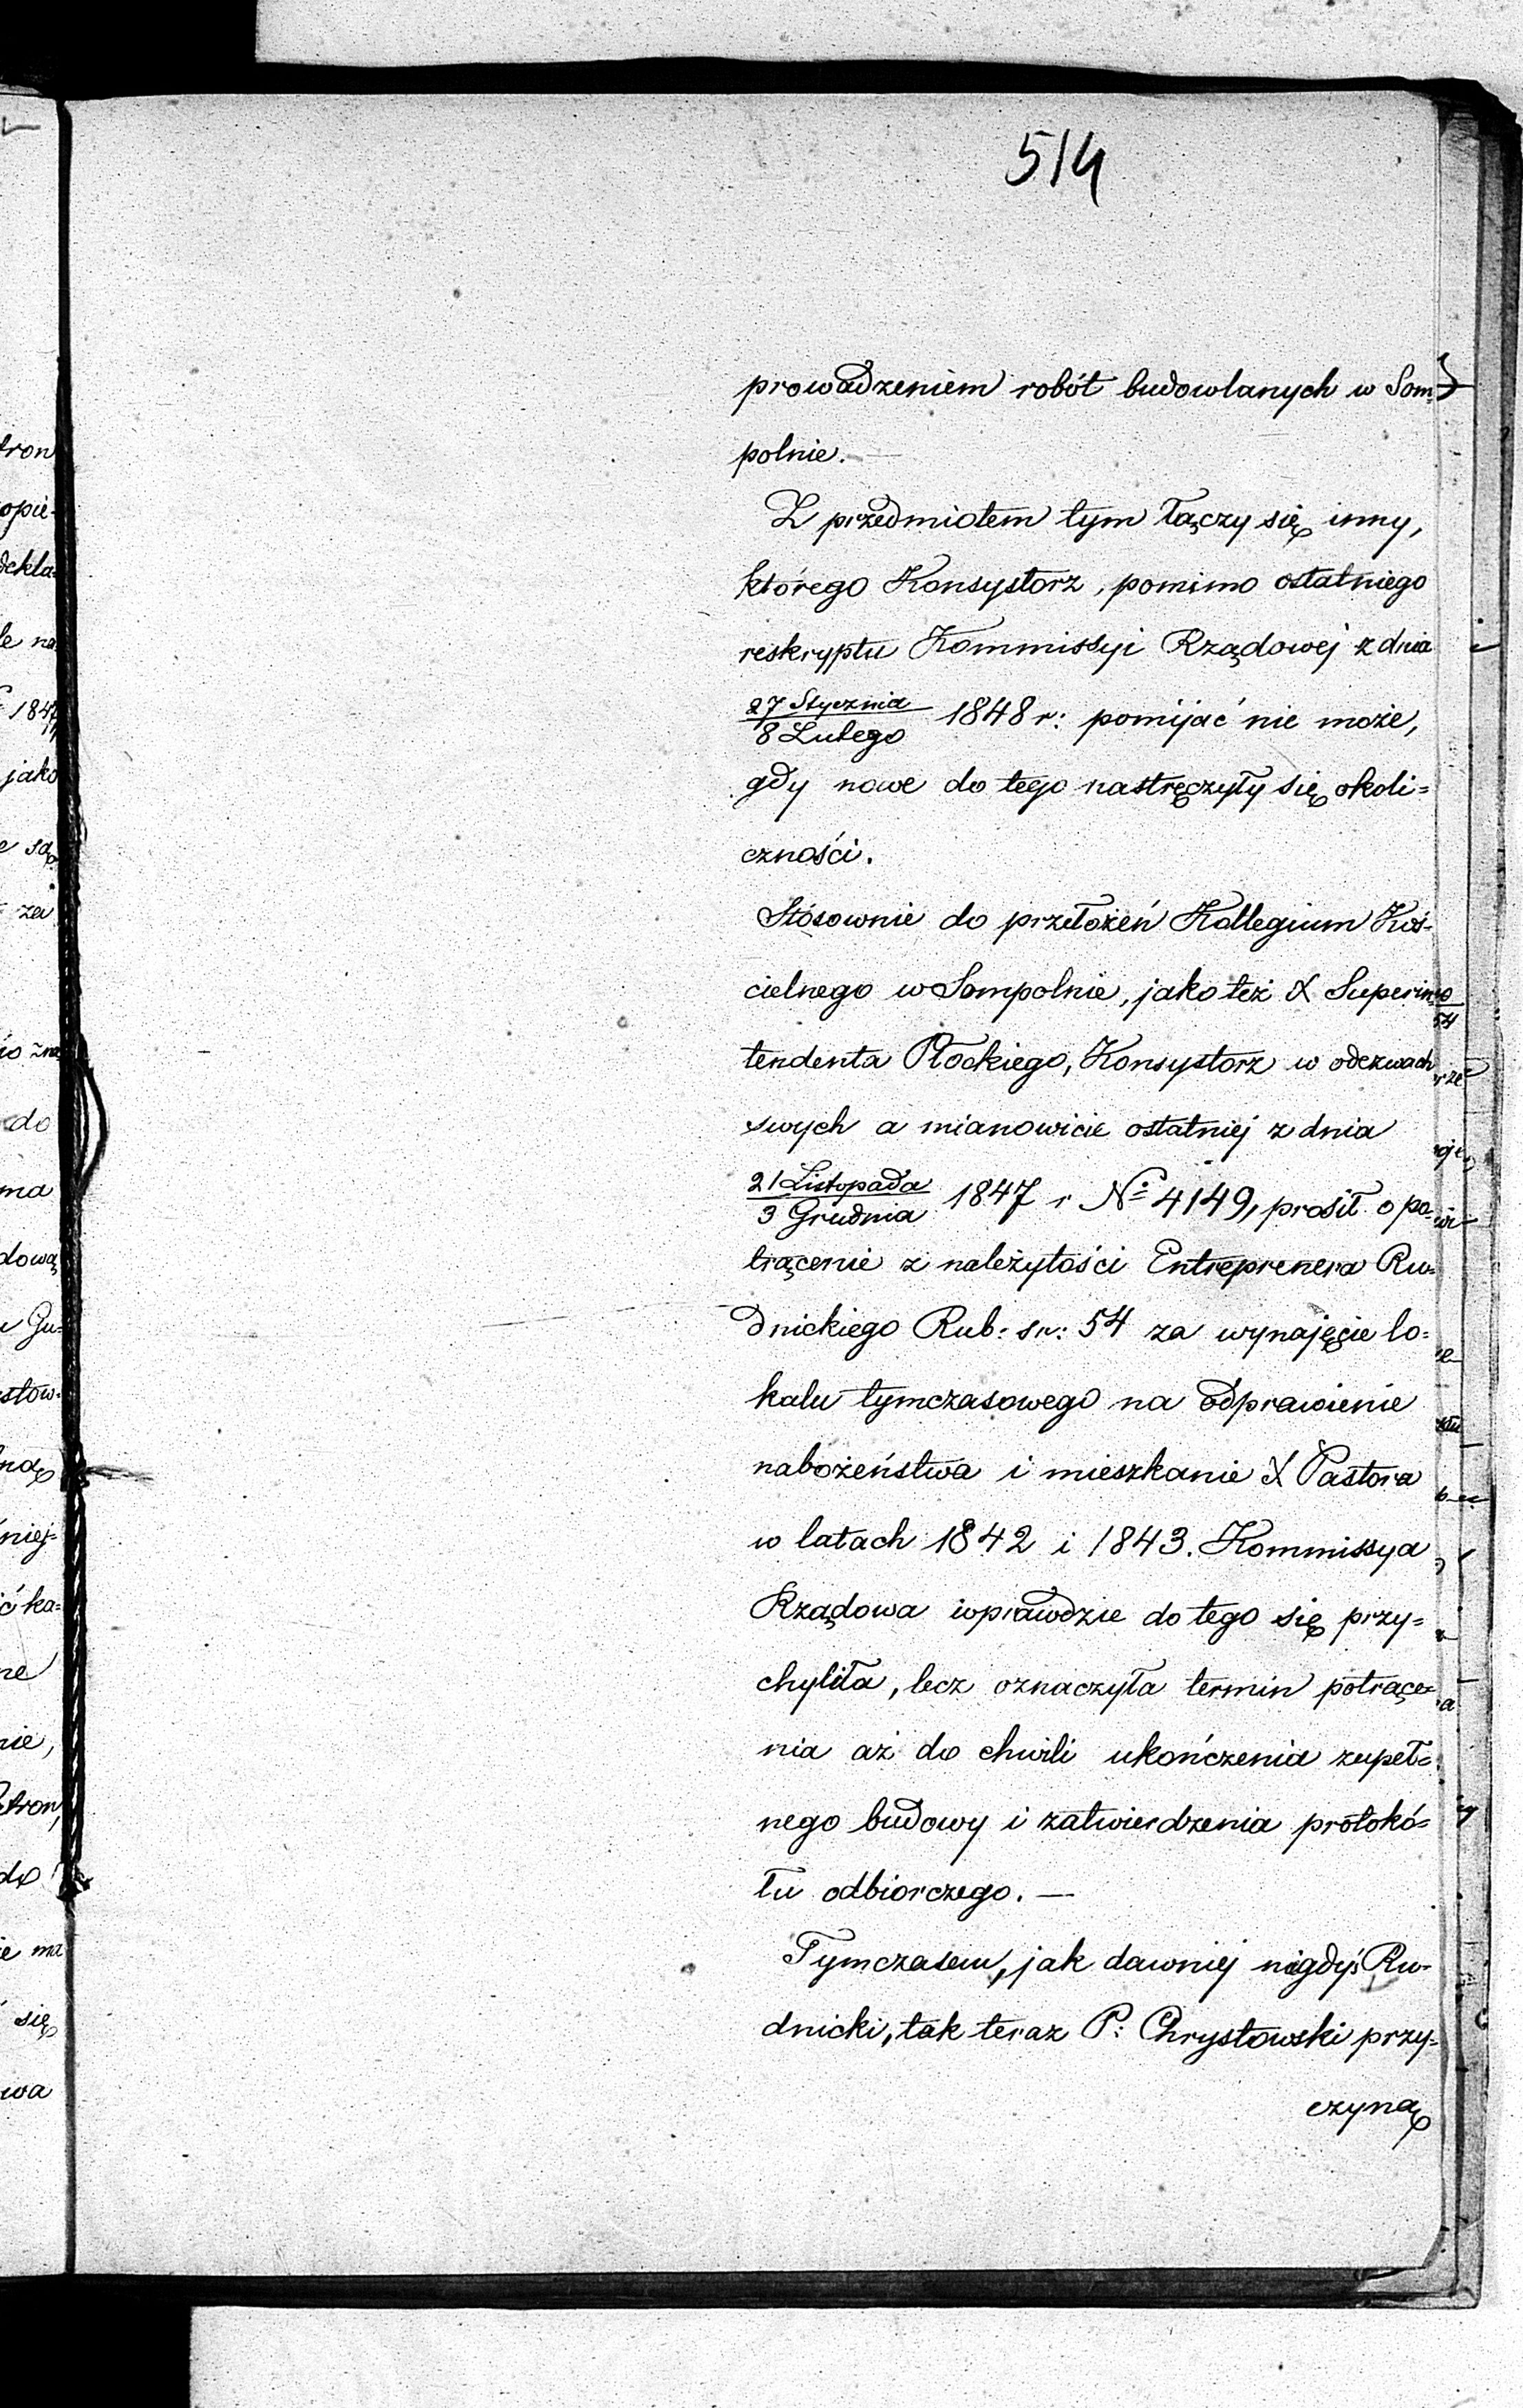 514
prowadzeniem robót budowlanych w Som=
polnie. —
Z przedmiotem tym łączy się inny,
którego Konsystorz, pomimo ostatniego
reskryptu Kommissyi Rządowej z dnia
27 Stycznia / 8 Lutego 1848 r: pomijać nie może,
gdy nowe do tego nastręczyły się okoli=
czności.
Stósownie do przełożeń Kollegium Koś=
cielnego w Sompolnie, jako też X Superin=
tendenta Płockiego, Konsystorz w odezwach
swych a mianowicie ostatniej z dnia
21 Listopada / 3 Grudnia 1847 r № 4149, prosił o po=
trącenie z należytości Entreprenera Ru=
dnickiego Rub: sr: 54 za wynajęcie lo=
kalu tymczasowego na odprawienie
nabożeństwa i mieszkanie X Pastora
w latach 1842 i 1843. Kommissya
Rządowa wprawdzie do tego się przy=
chyliła, lecz oznaczyła termin potrące=
nia aż do chwili ukończenia zupeł=
nego budowy i zatwierdzenia protokó=
łu odbiorczego. —
Tymczasem, jak dawniej nigdyś Ru=
dnicki, tak teraz P: Chrystowski przy=
czyną